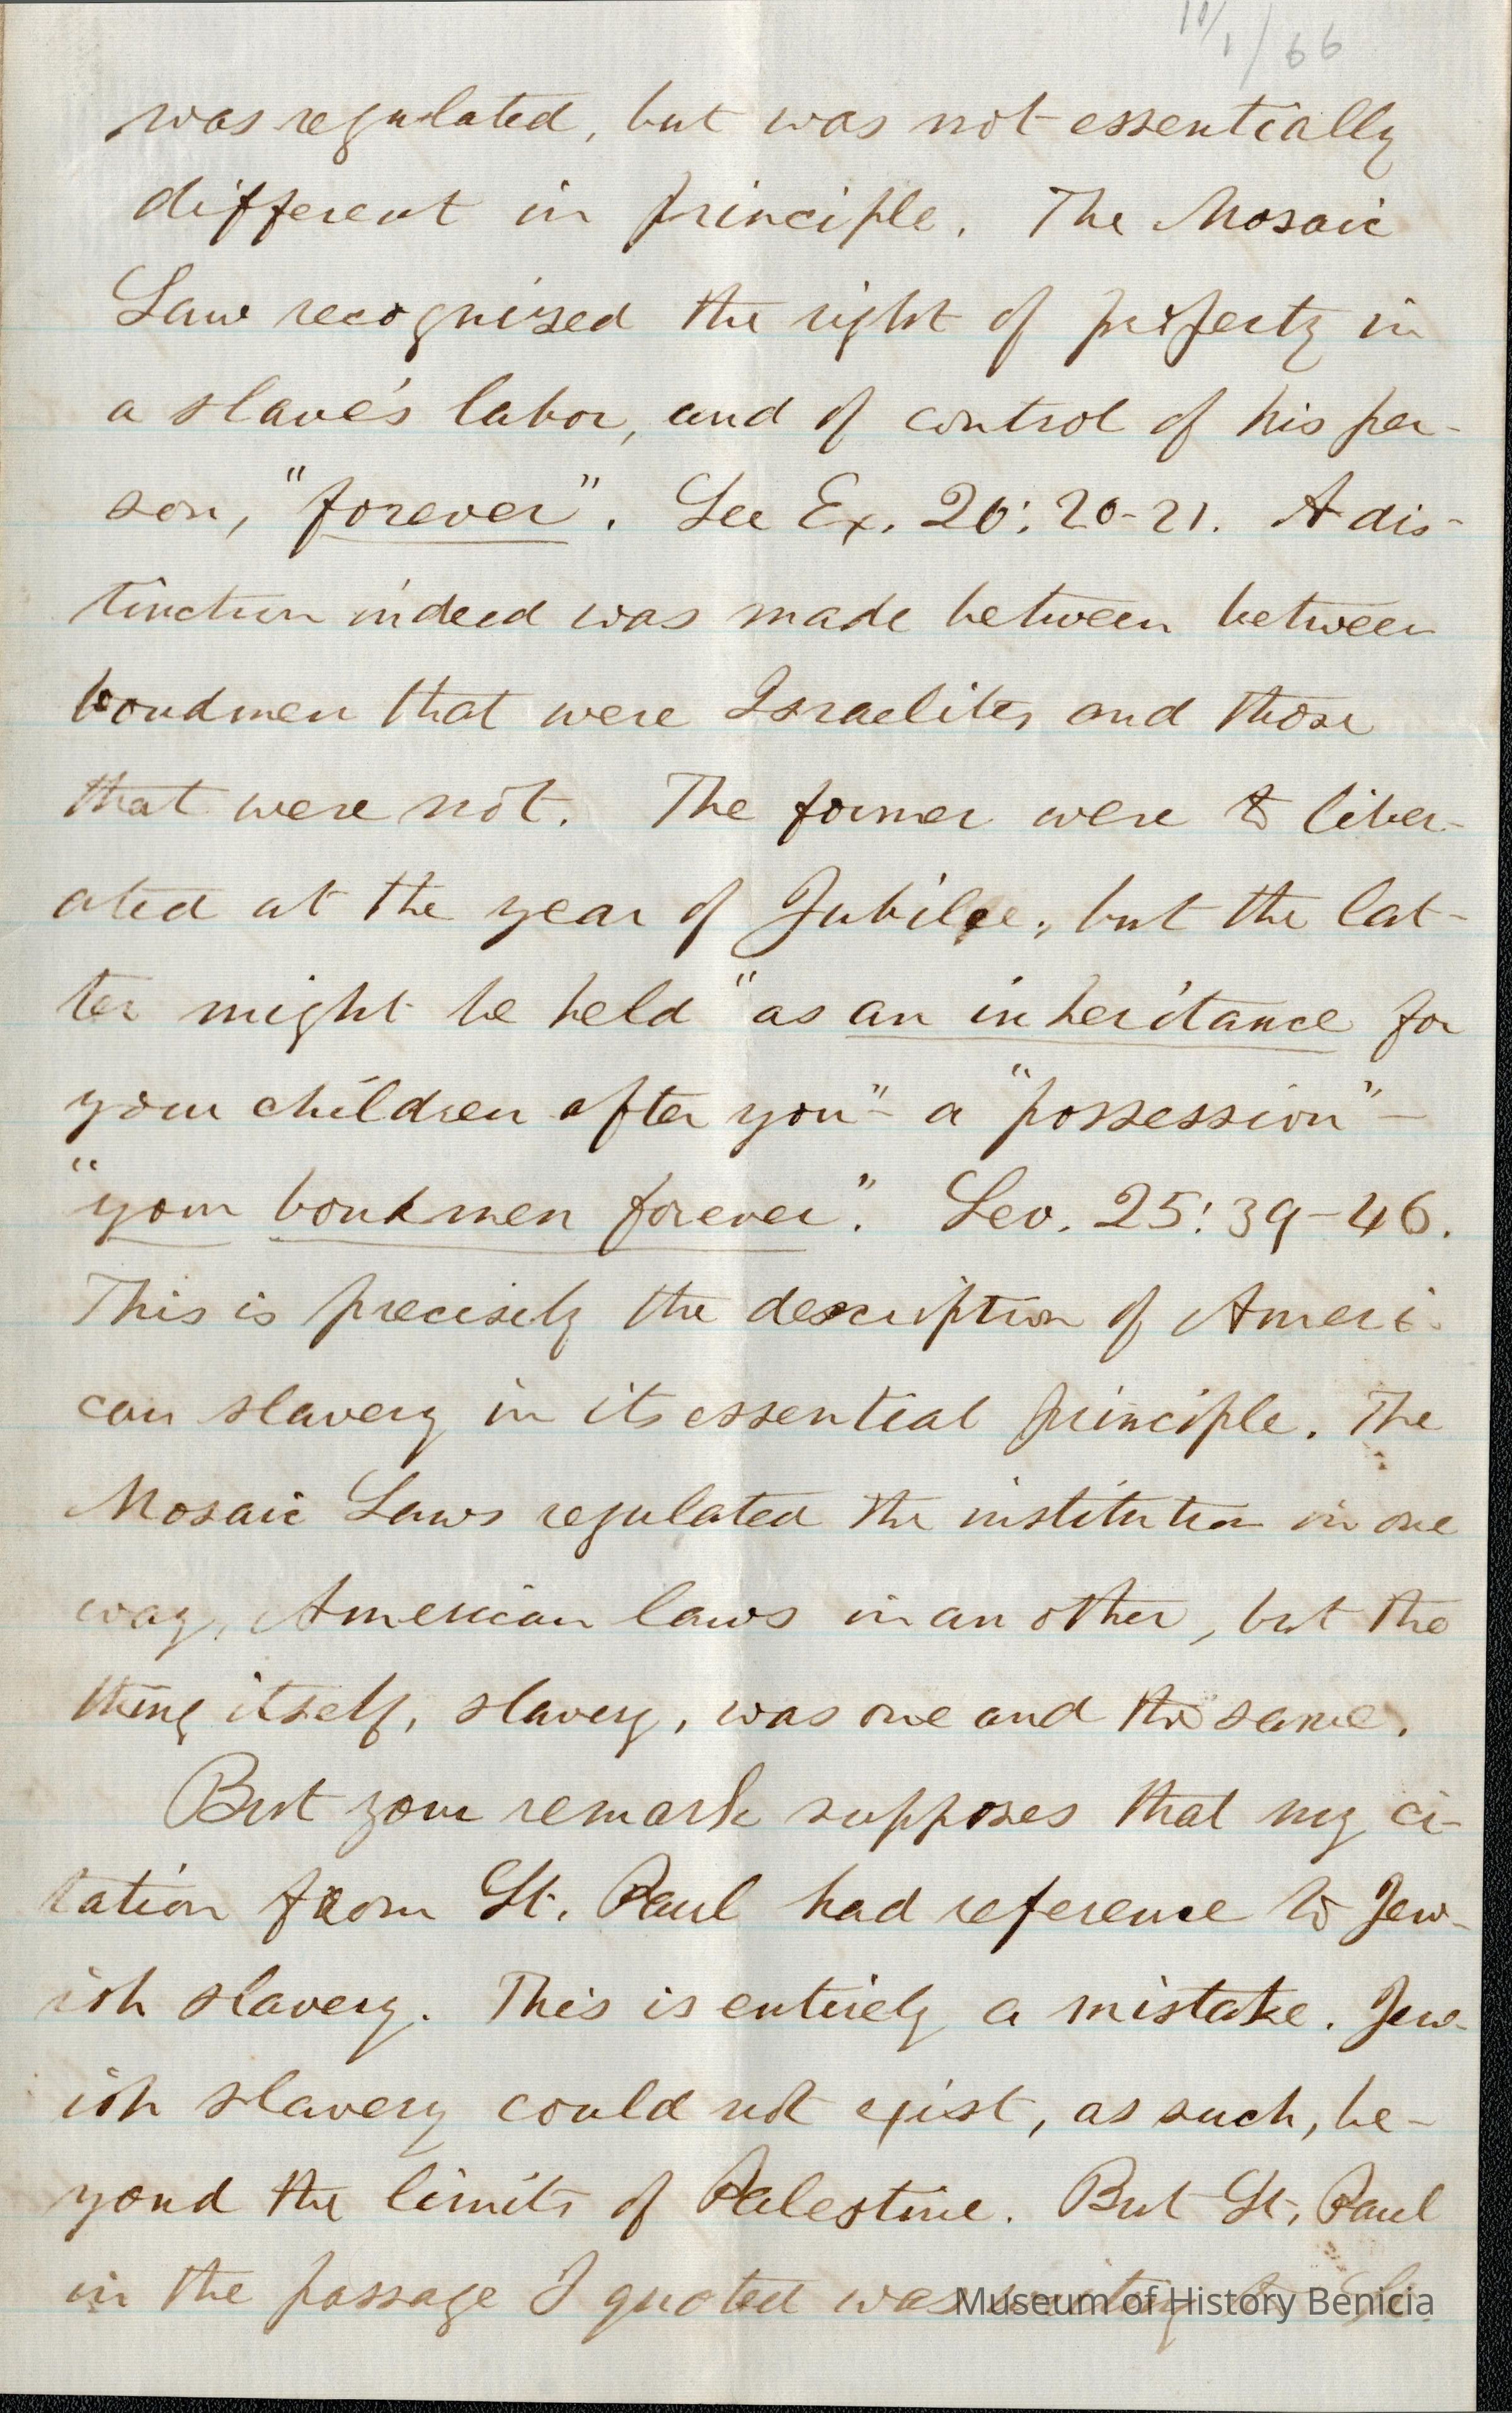 11/1/66
was regulated, but was not essentially
different in principle. The Mosaic
Law recognized the right of property in
a slave's labor, and of control of his per-
son, "forever". See Ex. 20:20-21. A dis-
tinction indeed was made between between
bondmen that were Israelites and those
that were not. The former were to liber-
ated at the year of Jubilee; but the lat-
ter might be held "as an inheritance for
your children after you" - a "possession" -
"your bondmen forever." Lev. 25:39-46.
This is precisely the description of Ameri
can slavery in its essential principle. The
Mosaic Laws regulated the institution in one
way, American laws in an other, but the
thing itself, slavery, was one and the same.
But your remark supposes that my ci-
tation from St. Paul had reference to Jew-
ish slavery. This is entirely a mistake. Jew-
ish slavery could not exist, as such, be-
yond the limits of Palestine. But St. Paul
in the passage I quoted was writing to
Museum of History Benicia